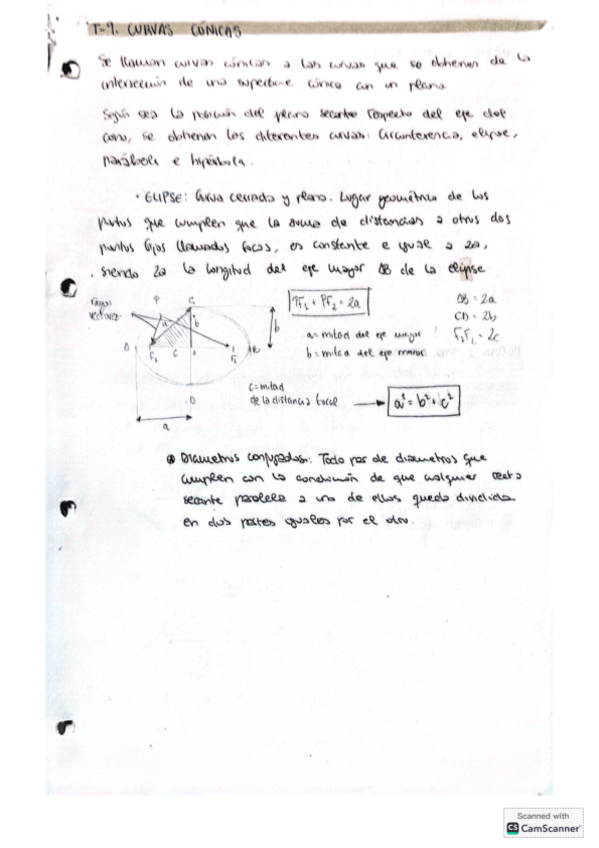 T-9. CURVAS CÓNICAS
Se llaman curvas cónicas a las curvas que se obtienen de la
intersección de una superficie cónica con un plano
Según sea la posición del plano secante respecto del eje del
cono, se obtienen las diferentes curvas: Circunferencia, elipse,
parábola e hipérbola.
• ELIPSE: Curva cerrada y plana. Lugar geométrico de los
puntos que cumplen que la suma de distancias a otros dos
puntos fijos llamados focos, es constante e igual a 2a,
siendo 2a la longitud del eje mayor AB de la elipse
rayos
vectores
P
C
PF₁ + PF₂ = 2a
AB = 2a
CD = 2b
F₁F₂ = 2c
a = mitad del eje mayor
b = mitad del eje menor
a
b
b
A
F₁
c
F₂
B
D
c = mitad
de la distancia focal
a² = b² + c²
a
Diametros conjugados: Todo par de diametros que
cumplen con la condición de que cualquier recta
secante paralela a uno de ellos queda dividida
en dos partes iguales por el otro.
Scanned with
CS CamScanner